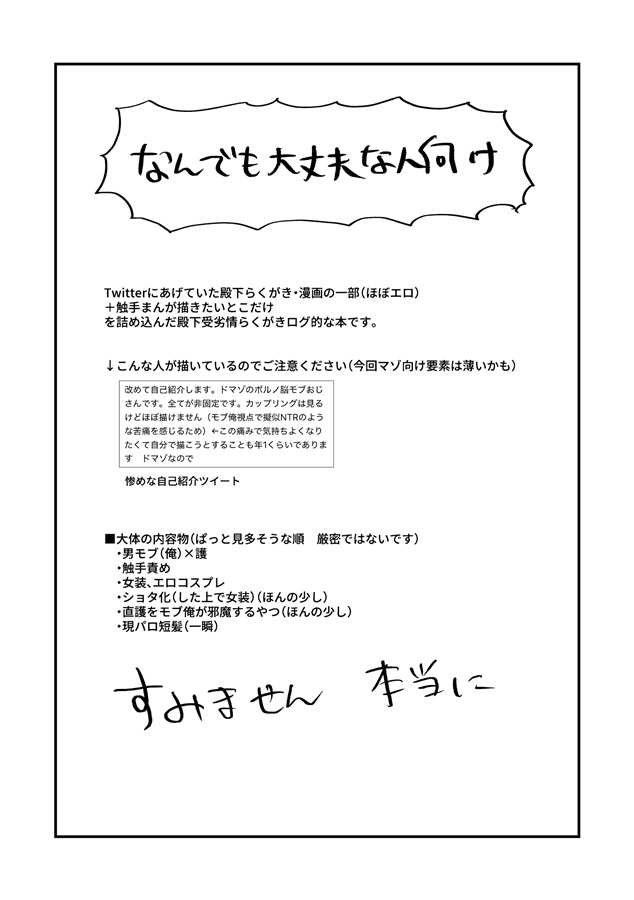 なんでも大丈夫な人向け
Twitterにあげていた殿下らくがき・漫画の一部（ほぼエロ）
＋触手まんが描きたいとこだけ
を詰め込んだ殿下受劣情らくがきログ的な本です。
↓こんな人が描いているのでご注意ください（今回マゾ向け要素は薄いかも）
改めて自己紹介します。ドマゾのポルノ脳モブおじ
さんです。全てが非固定です。カップリングは見る
けどほぼ描けません（モブ俺視点で擬似NTRのよう
な苦痛を感じるため）←この痛みで気持ちよくなり
たくて自分で描こうとすることも年1くらいでありま
す　ドマゾなので
惨めな自己紹介ツイート
■大体の内容物（ぱっと見多そうな順　厳密ではないです）
・男モブ（俺）×護
・触手責め
・女装、エロコスプレ
・ショタ化（した上で女装）（ほんの少し）
・直護をモブ俺が邪魔するやつ（ほんの少し）
・現パロ短髪（一瞬）
すみません　本当に